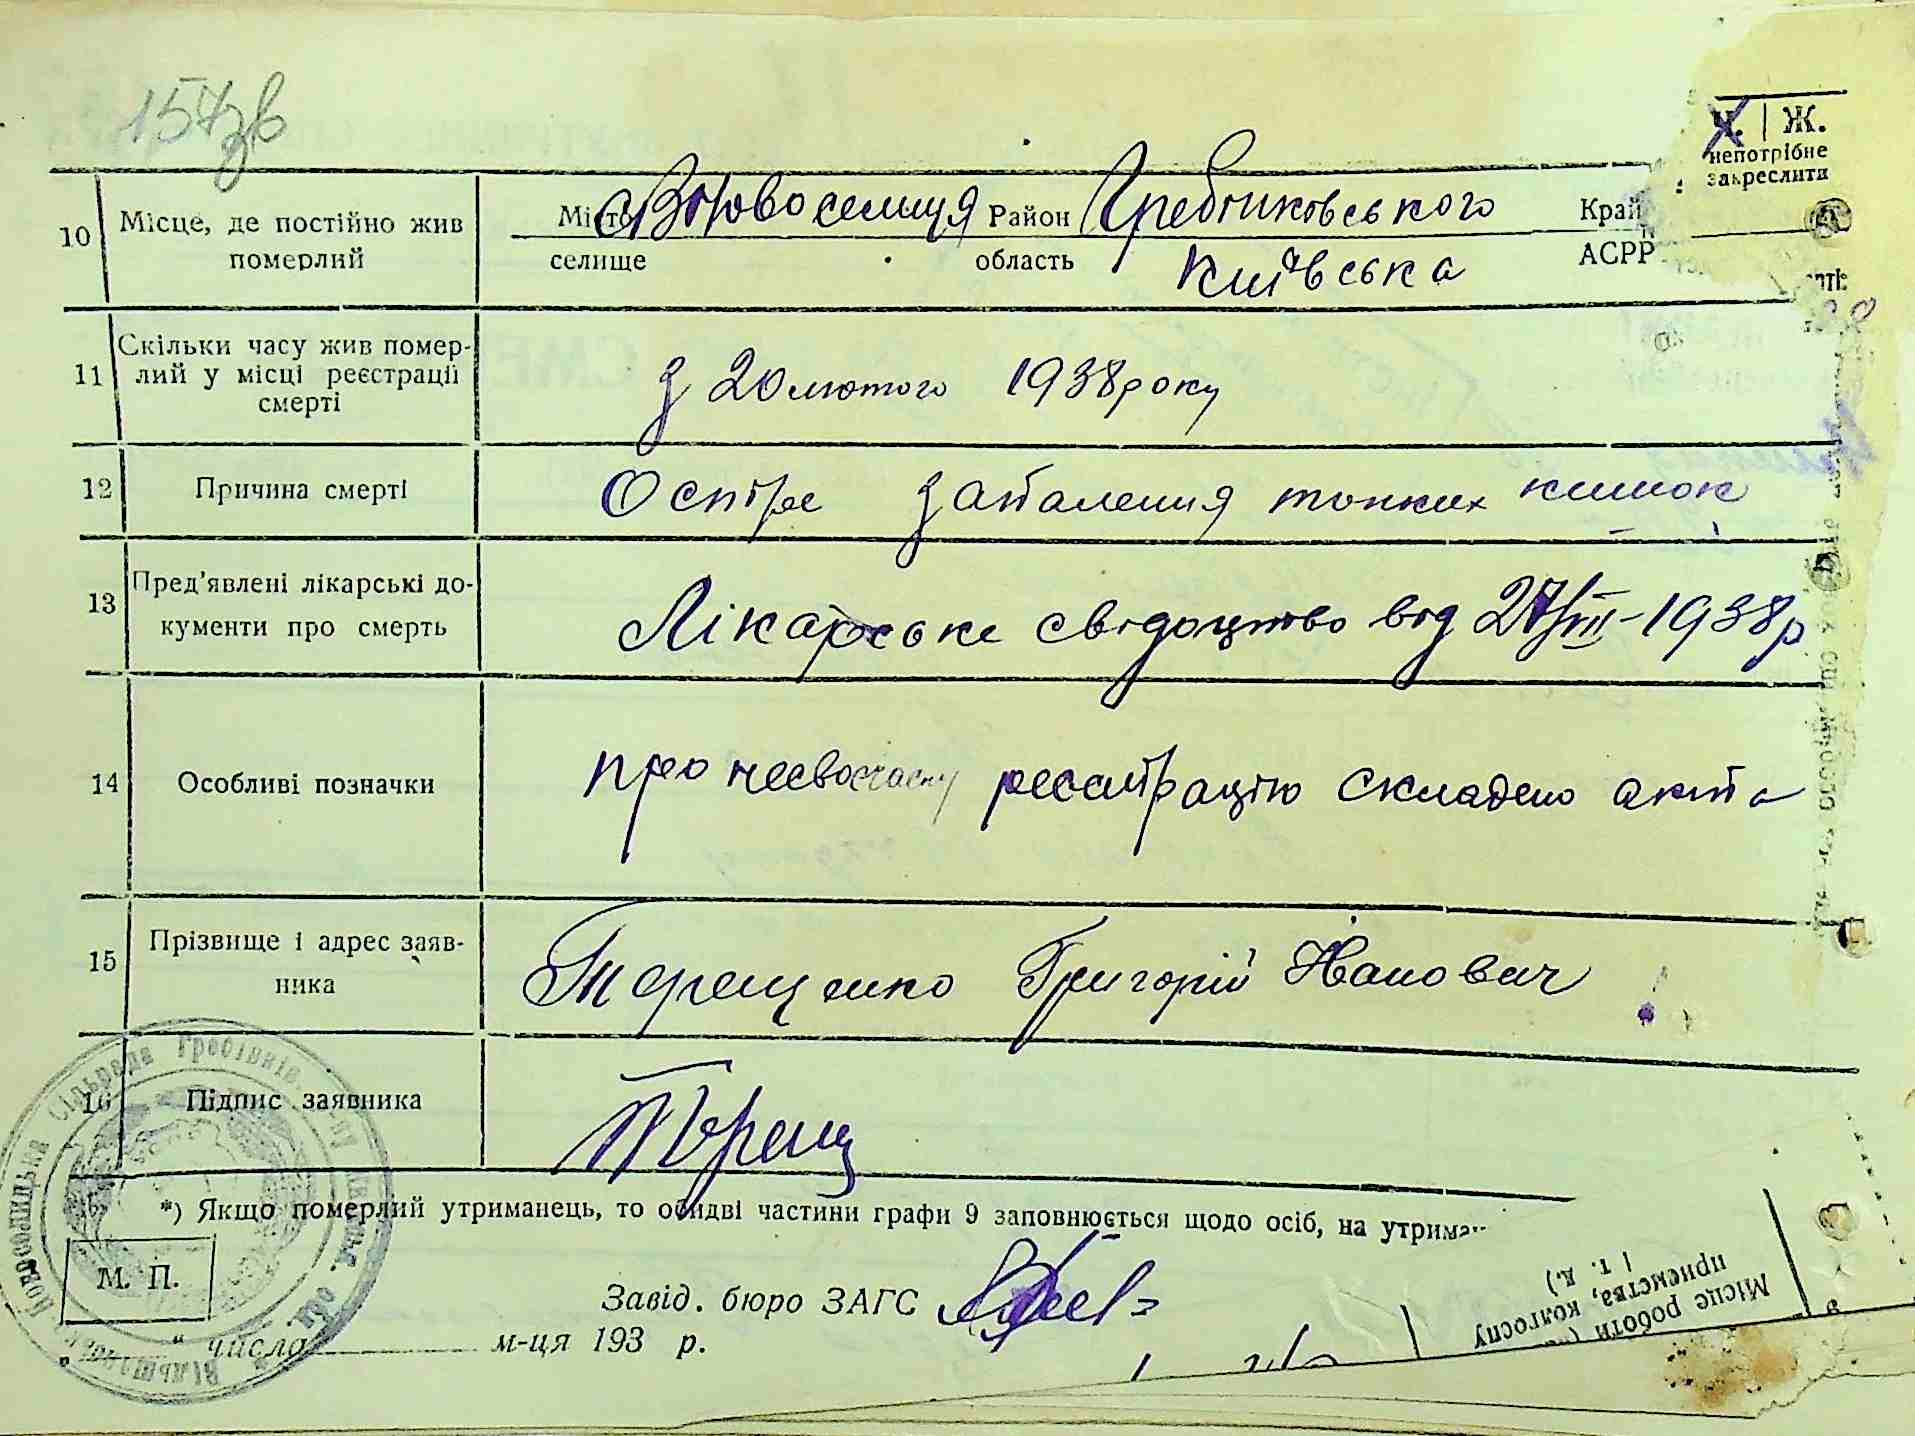 157зв
Ч. | Ж.
непотрібне
закреслити
10 Місце, де постійно жив померлий
Місто Новоселиця Район Гребінковського Край
селище область Київська АСРР
11 Скільки часу жив помер-
лий у місці реєстрації
смерті
з 20 лютого 1938 року
12 Причина смерті Остре запалення тонких кишок
13 Пред'явлені лікарські до-
кументи про смерть
Лікарське свідоцтво від 27/VIII-1938р
14 Особливі позначки про несвочасну реєстрацію складено акта
15 Прізвище і адрес заяв-
ника
Терещенко Григорій Іванович
16 Підпис заявника Терещ
*) Якщо померлий утриманець, то обидві частини графи 9 заповнюється щодо осіб, на
М. П.
Завід. бюро ЗАГС
" числа м-ця 193 р.
Сільрада
Місце роботи
приємства, колгоспу
і т. д.)